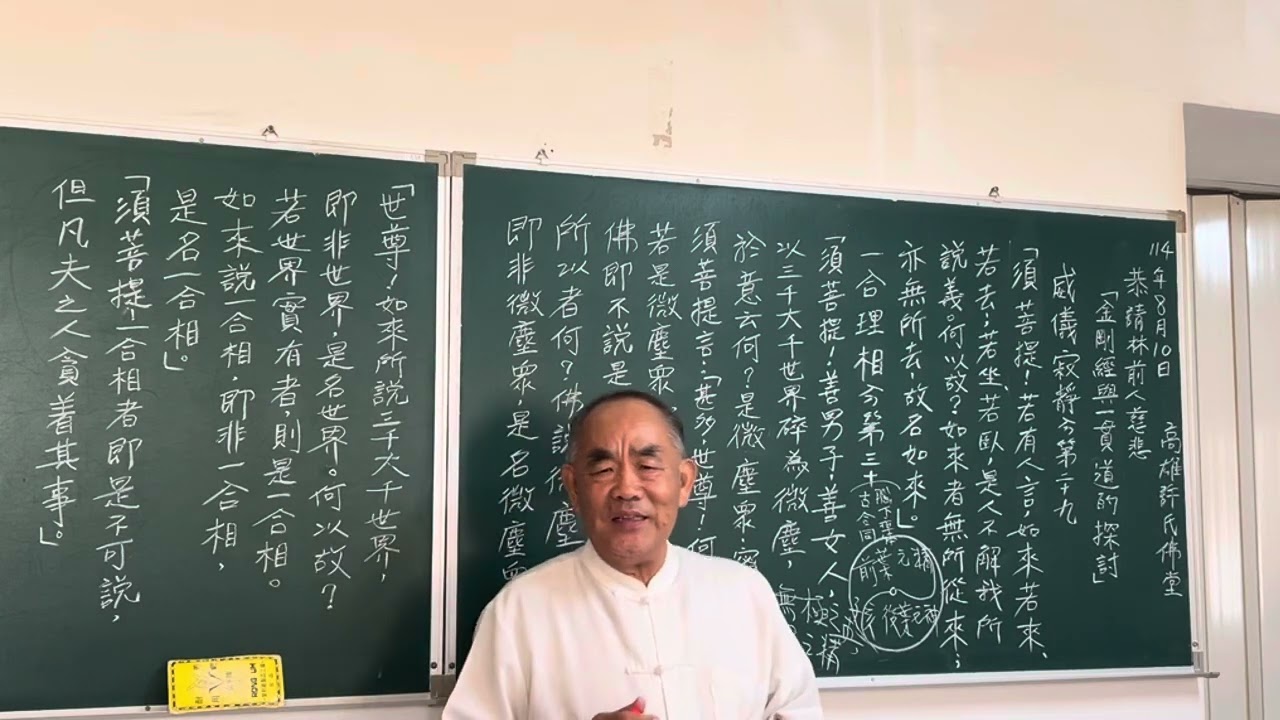 114年8月10日 高雄許氏佛堂
恭請林前人慈悲
「金剛經與一貫道的探討」
威儀寂靜分第二十九
「須菩提！若有人言，如來若來、
若去；若坐、若臥，是人不解我所
說義。何以故？如來者無所從來，
亦無所去，故名如來。」
一合理相分第三十
「須菩提！善男子，善女人，
以三千大千世界碎為微塵，
於意云何？是微塵眾，寧
須菩提言：「甚多，世尊！何
若是微塵眾
佛即不說是
所以者何？佛說微塵
即非微塵眾，是名微塵眾
古合同
前業 元精
後業 元神
「世尊！如來所說三千大千世界，
即非世界，是名世界。何以故？
若世界實有者，則是一合相。
如來說一合相，即非一合相，
是名一合相。」
「須菩提，一合相者即是不可說，
但凡夫之人貪着其事。」